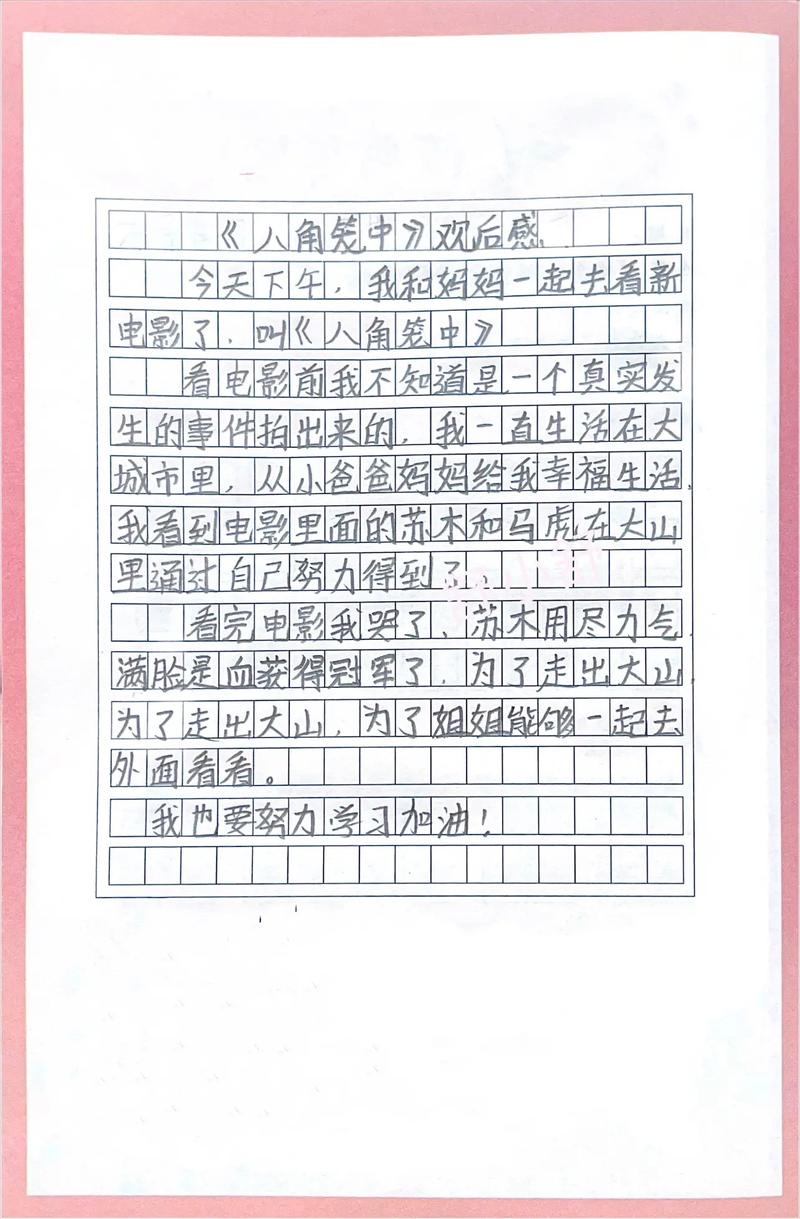 《八角笼中》观后感
今天下午，我和妈妈一起去看新
电影了，叫《八角笼中》
看电影前我不知道是一个真实发
生的事件拍出来的，我一直生活在大
城市里，从小爸爸妈妈给我幸福生活，
我看到电影里面的苏木和马虎在大山
里通过自己努力得到了、
看完电影我哭了、苏木用尽力气，
满脸是血获得冠军了，为了走出大山，
为了走出大山，为了姐姐能够一起去
外面看看。
我也要努力学习加油！